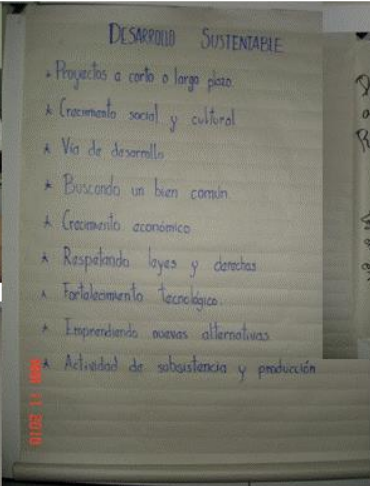 DESARROLLO SUSTENTABLE
* Proyectos a corto o largo plazo.
* Crecimiento social y cultural
* Vía de desarrollo
* Buscando un bien común.
* Crecimiento económico
* Respetando leyes y derechos
* Fortalecimiento tecnológico.
* Emprendiendo nuevas alternativas
* Actividad de subsistencia y producción